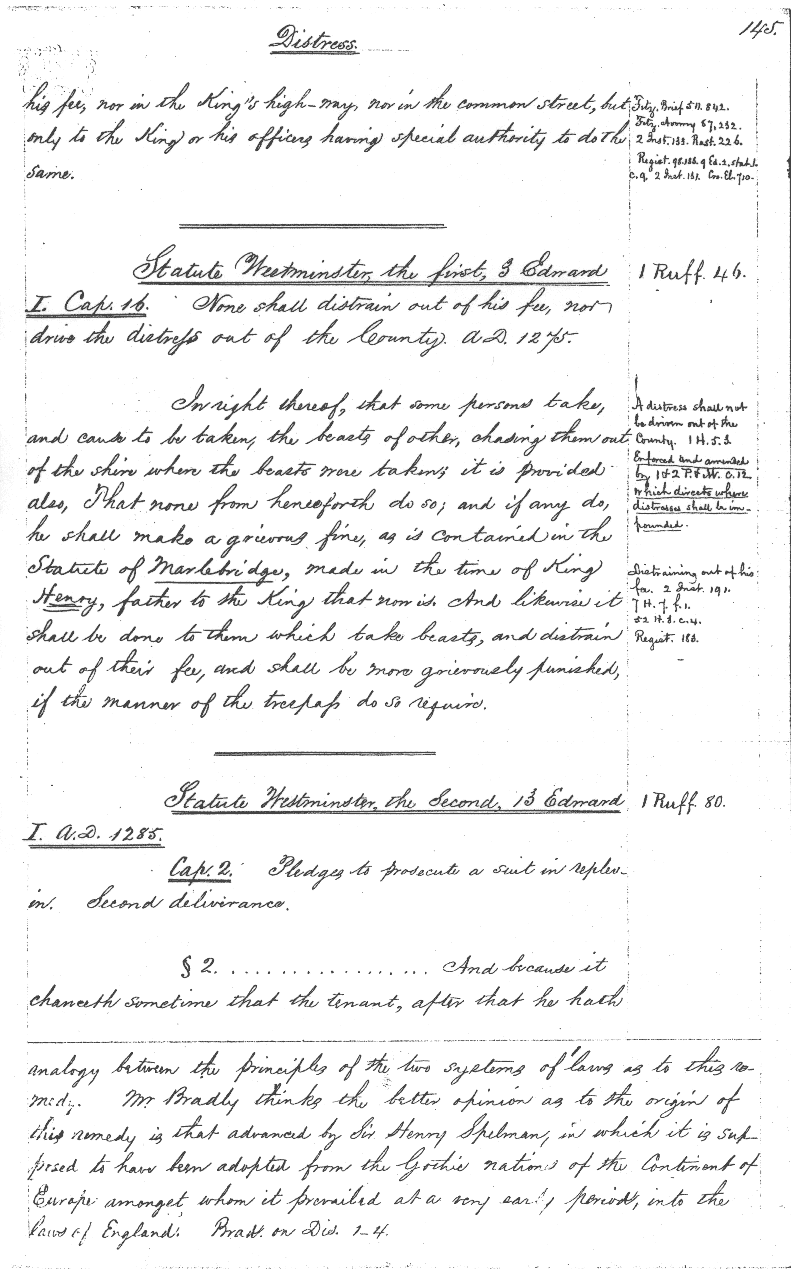 145.
Distress.
his fee, nor in the King's high-way, nor in the common street, but
only to the King or his officers having special authority to do the
same.
Fitz. Brief 511. 842.
Fitz. Avowry 87, 232.
2 Inst. 133. Rast. 226.
Regist. 98. 183. 9 Ed. 2. stat. 1.
c. 9. 2 Inst. 131. Cro. El. 710.
Statute Westminster, the first, 3 Edward
I. Cap. 16. None shall distrain out of his fee, nor
drive the distress out of the County. A.D. 1275.
1 Ruff. 46.
In right thereof, that some persons take,
and cause to be taken, the beasts of other, chasing them out
of the shire where the beasts were taken; it is provided
also, That none from henceforth do so; and if any do,
he shall make a grievous fine, as is contained in the
Statute of Marlebridge, made in the time of King
Henry, father to the King that now is. And likewise it
shall be done to them which take beasts, and distrain
out of their fee, and shall be more grievously punished,
if the manner of the trespass do so require.
A distress shall not
be driven out of the
County. 1 H. 5. 3.
Enforced and amended
by 1 & 2 P. & M. c. 12.
which directs where
distresses shall be im-
pounded.
Distraining out of his
fee. 2 Inst. 191.
7 H. 7. f. 1.
52 H. 3. c. 4.
Regist. 183.
Statute Westminster, the Second, 13 Edward
I. A.D. 1285.
1 Ruff. 80.
Cap. 2. Pledges to prosecute a suit in replev-
in. Second deliverance.
§ 2. . . . . . . . . . . . . . . . . . And because it
chanceth sometime that the tenant, after that he hath
analogy between the principles of the two systems of laws as to this re-
medy. Mr Bradly thinks the better opinion as to the origin of
this remedy is that advanced by Sir Henry Spelman, in which it is sup-
posed to have been adopted from the Gothic nations of the Continent of
Europe amongst whom it prevailed at a very early period, into the
laws of England. Brad. on Dis. 1-4.